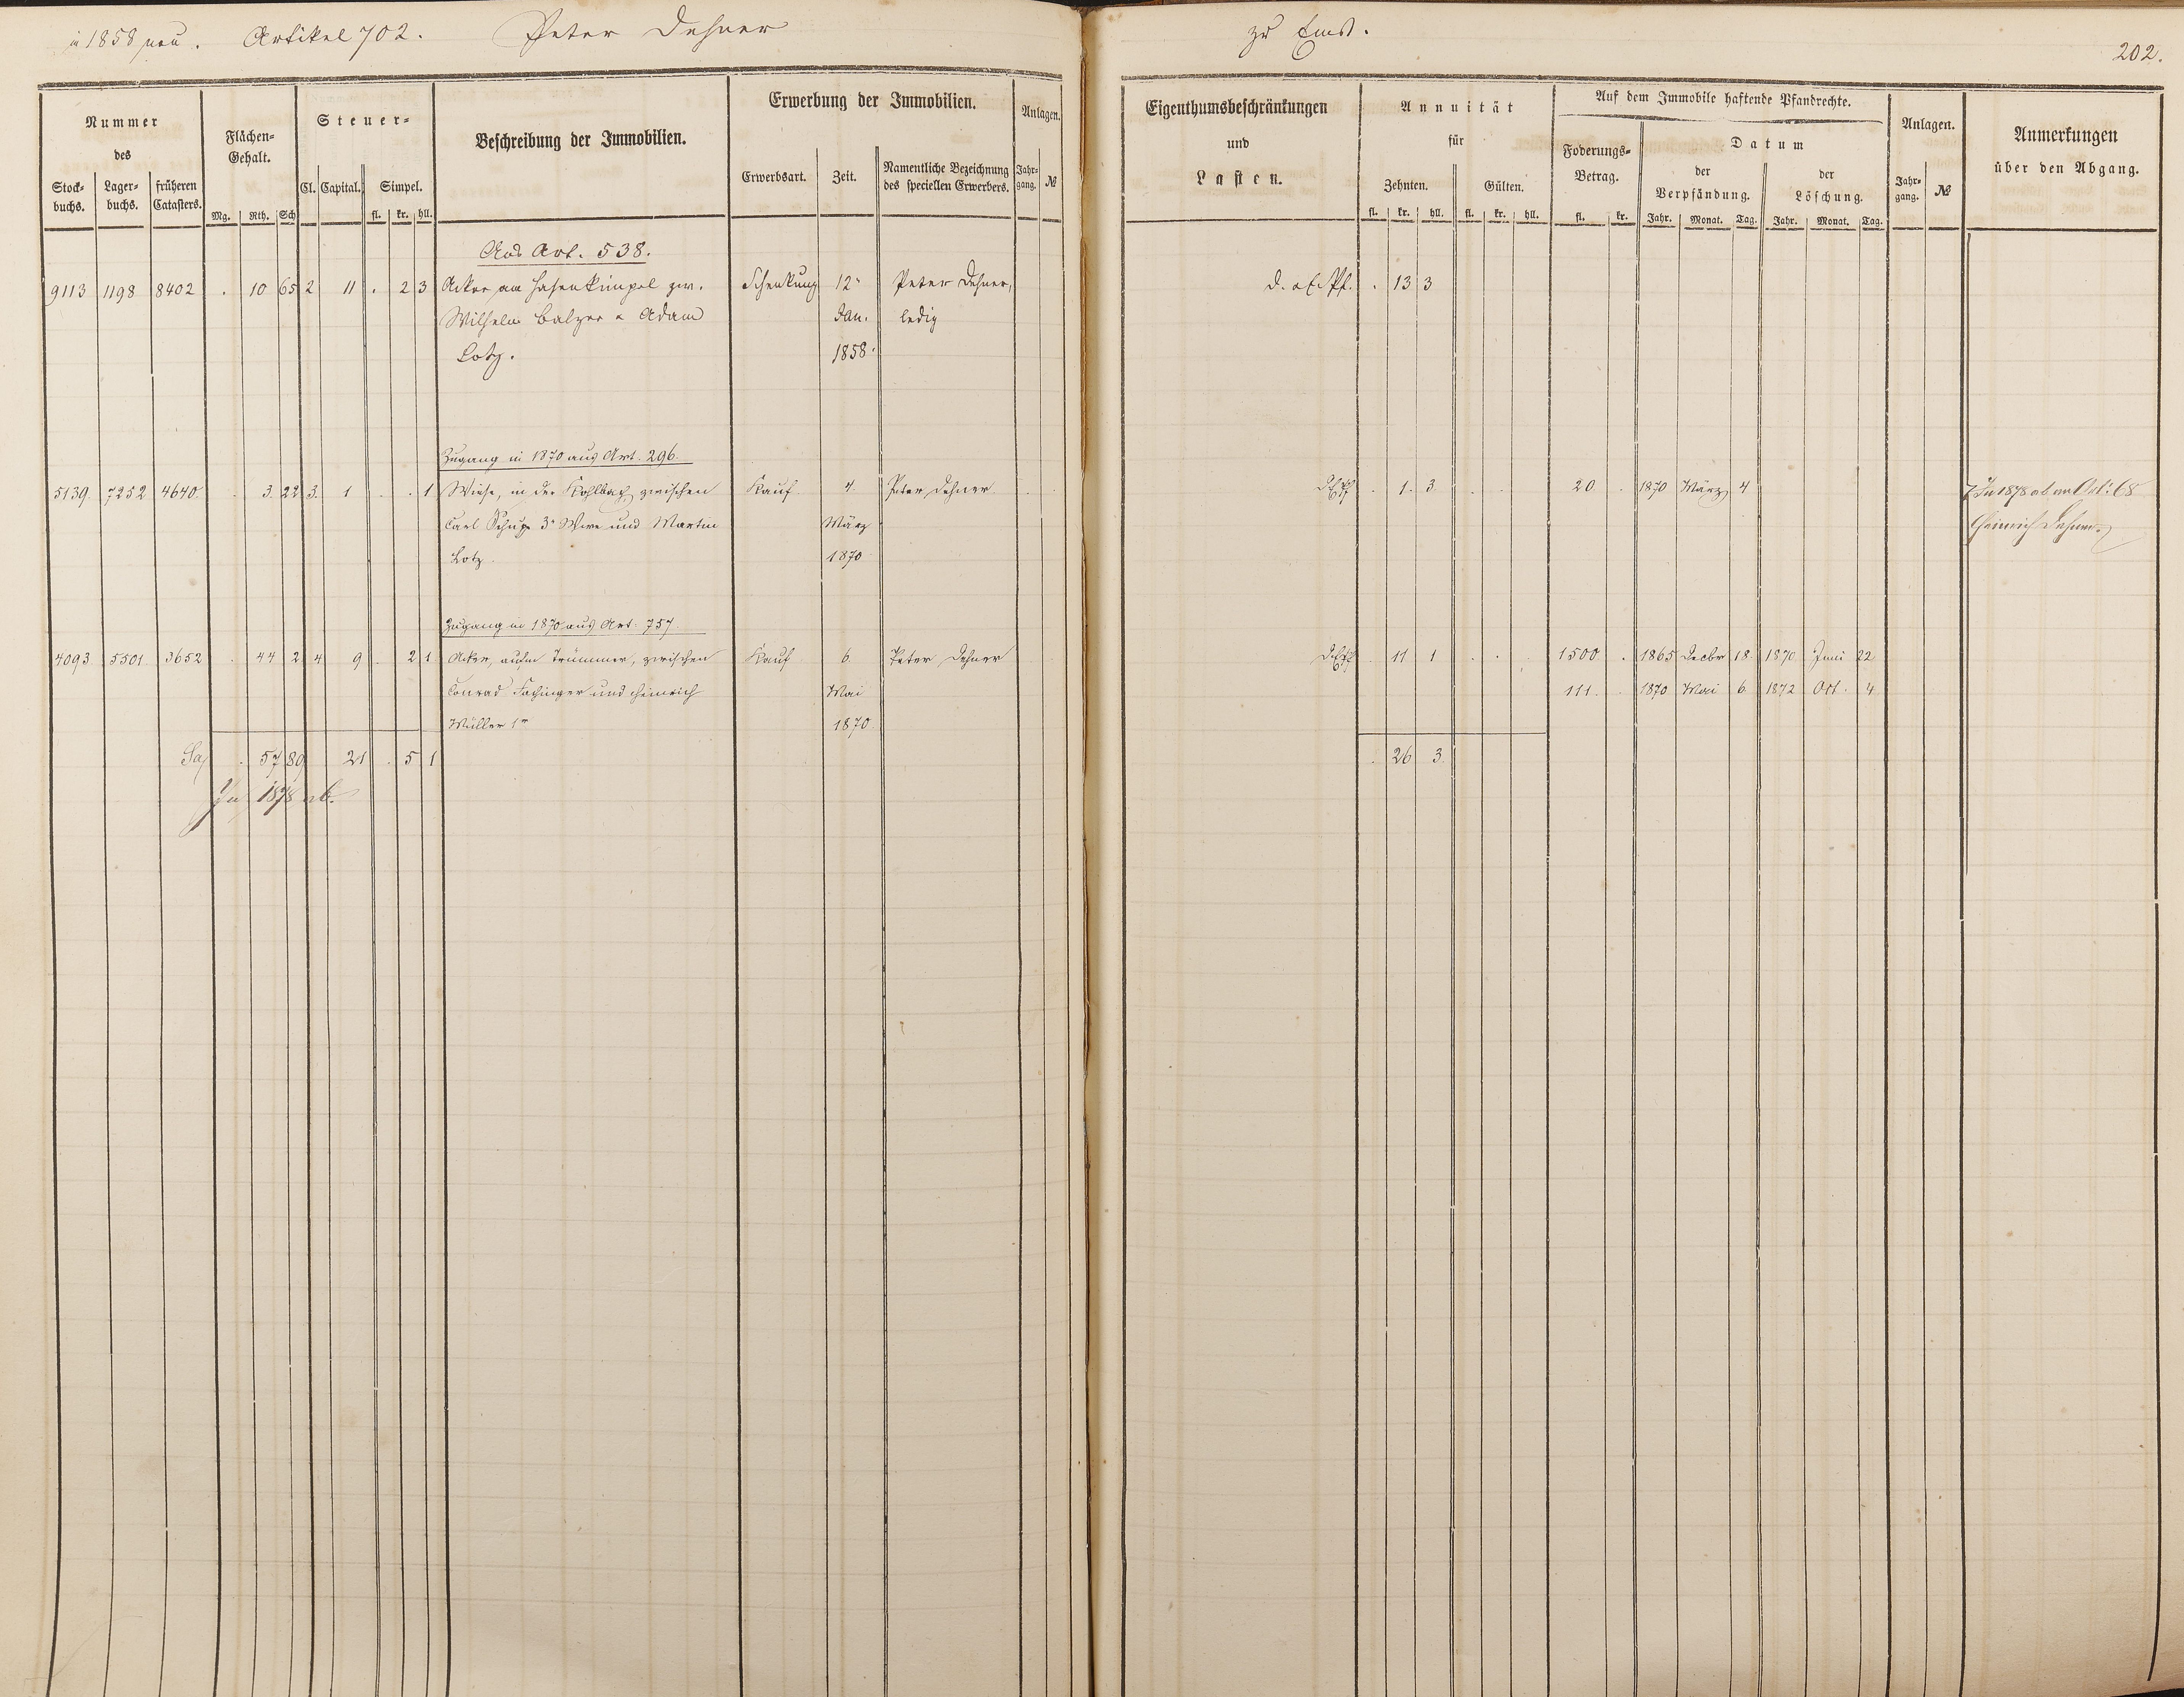 in 1858 neu. Artikel 702. Peter Dehner zu Emst. 202.
Nummer des
Stock- buchs. Lager- buchs. früheren Catasters.
Flächen- Gehalt.
Mg. Rth. Sch
Steuer-
Cl. Capital. Simpel.
fl. kr. hll.
Beschreibung der Immobilien.
Erwerbung der Immobilien.
Erwerbsart. Zeit. Namentliche Bezeichnung des speciellen Erwerbers.
Anlagen.
Jahr- gang. №
Eigenthumsbeschränkungen
und
Lasten.
Annuität
für
Zehnten. Gülten.
fl. kr. hll. fl. kr. hll.
Auf dem Immobile haftende Pfandrechte.
Foderungs- Betrag.
fl. kr.
Datum
der Verpfändung. der Löschung.
Jahr. Monat. Tag. Jahr. Monat. Tag.
Anlagen.
Jahr- gang. №
Anmerkungen
über den Abgang.
Aus Art. 538.
9113 1198 8402 . 10 65 2 11 . 2 3 Acker am Hasenkimpel zw. Schenkung 12n Peter Dehner, . 13 3
Wilhelm Balzer u Adam Jan. ledig
Lotz. 1858.
Zugang in 1870 aus Art. 296.
5139. 7252 4640. . 3. 22 3. 1 . . 1. Wiese, in der Kohlbach, zwischen Kauf. 4. Peter Dehner. . 1. 3 20. . 1870 März 4 In 1878 ab an Art: 68
Carl Schupp 3r Wwe und Martin März Heinrich Dehner.
Lotz. 1870
Zugang in 1870 aus Art: 757.
4093 5501 3652 . 44 2 4 9 . 2 1. Acker, aufm Trümmer, zwischen Kauf 6. Peter Dehner . 11 1 1500. . 1865 Decbr 18. 1870 Juni 22
Conrad Fachinger und Heinrich Mai 111. . 1870 Mai 6 1872 Oct. 4
Müller 1r 1870.
Sa . 57 89 21 . 5 1 . 26 3.
In 1878 ab.